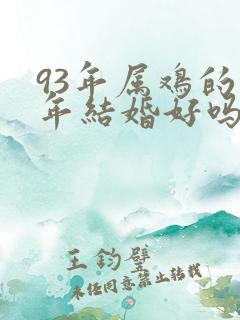 93年属鸡的
年结婚好吗
王钧壁
未经同意禁止转载